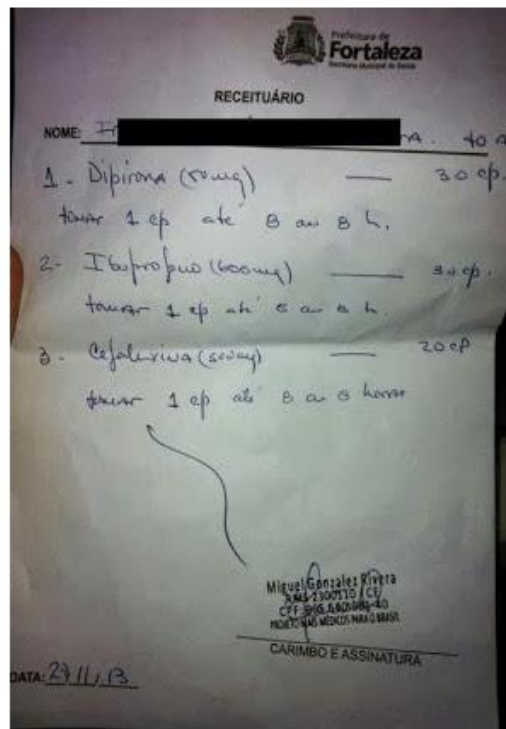 Prefeitura de
Fortaleza
Secretaria Municipal de Saúde
RECEITUÁRIO
NOME:
1 - Dipirona (50mg) — 30 cp.
tomar 1 cp até 8 an 8 h.
2 - Ibuprofeno (600mg) — 30 cp.
tomar 1 cp ate 8 an 8 h.
3 - Cefalexina (500mg) — 20 cp
tomar 1 cp até 8 an 8 horas
Miguel Gonzalez Rivera
RMS 2300110 / CE
CPF
PROJETO MAIS MÉDICOS PARA O BRASIL
CARIMBO E ASSINATURA
DATA: 27/11/13